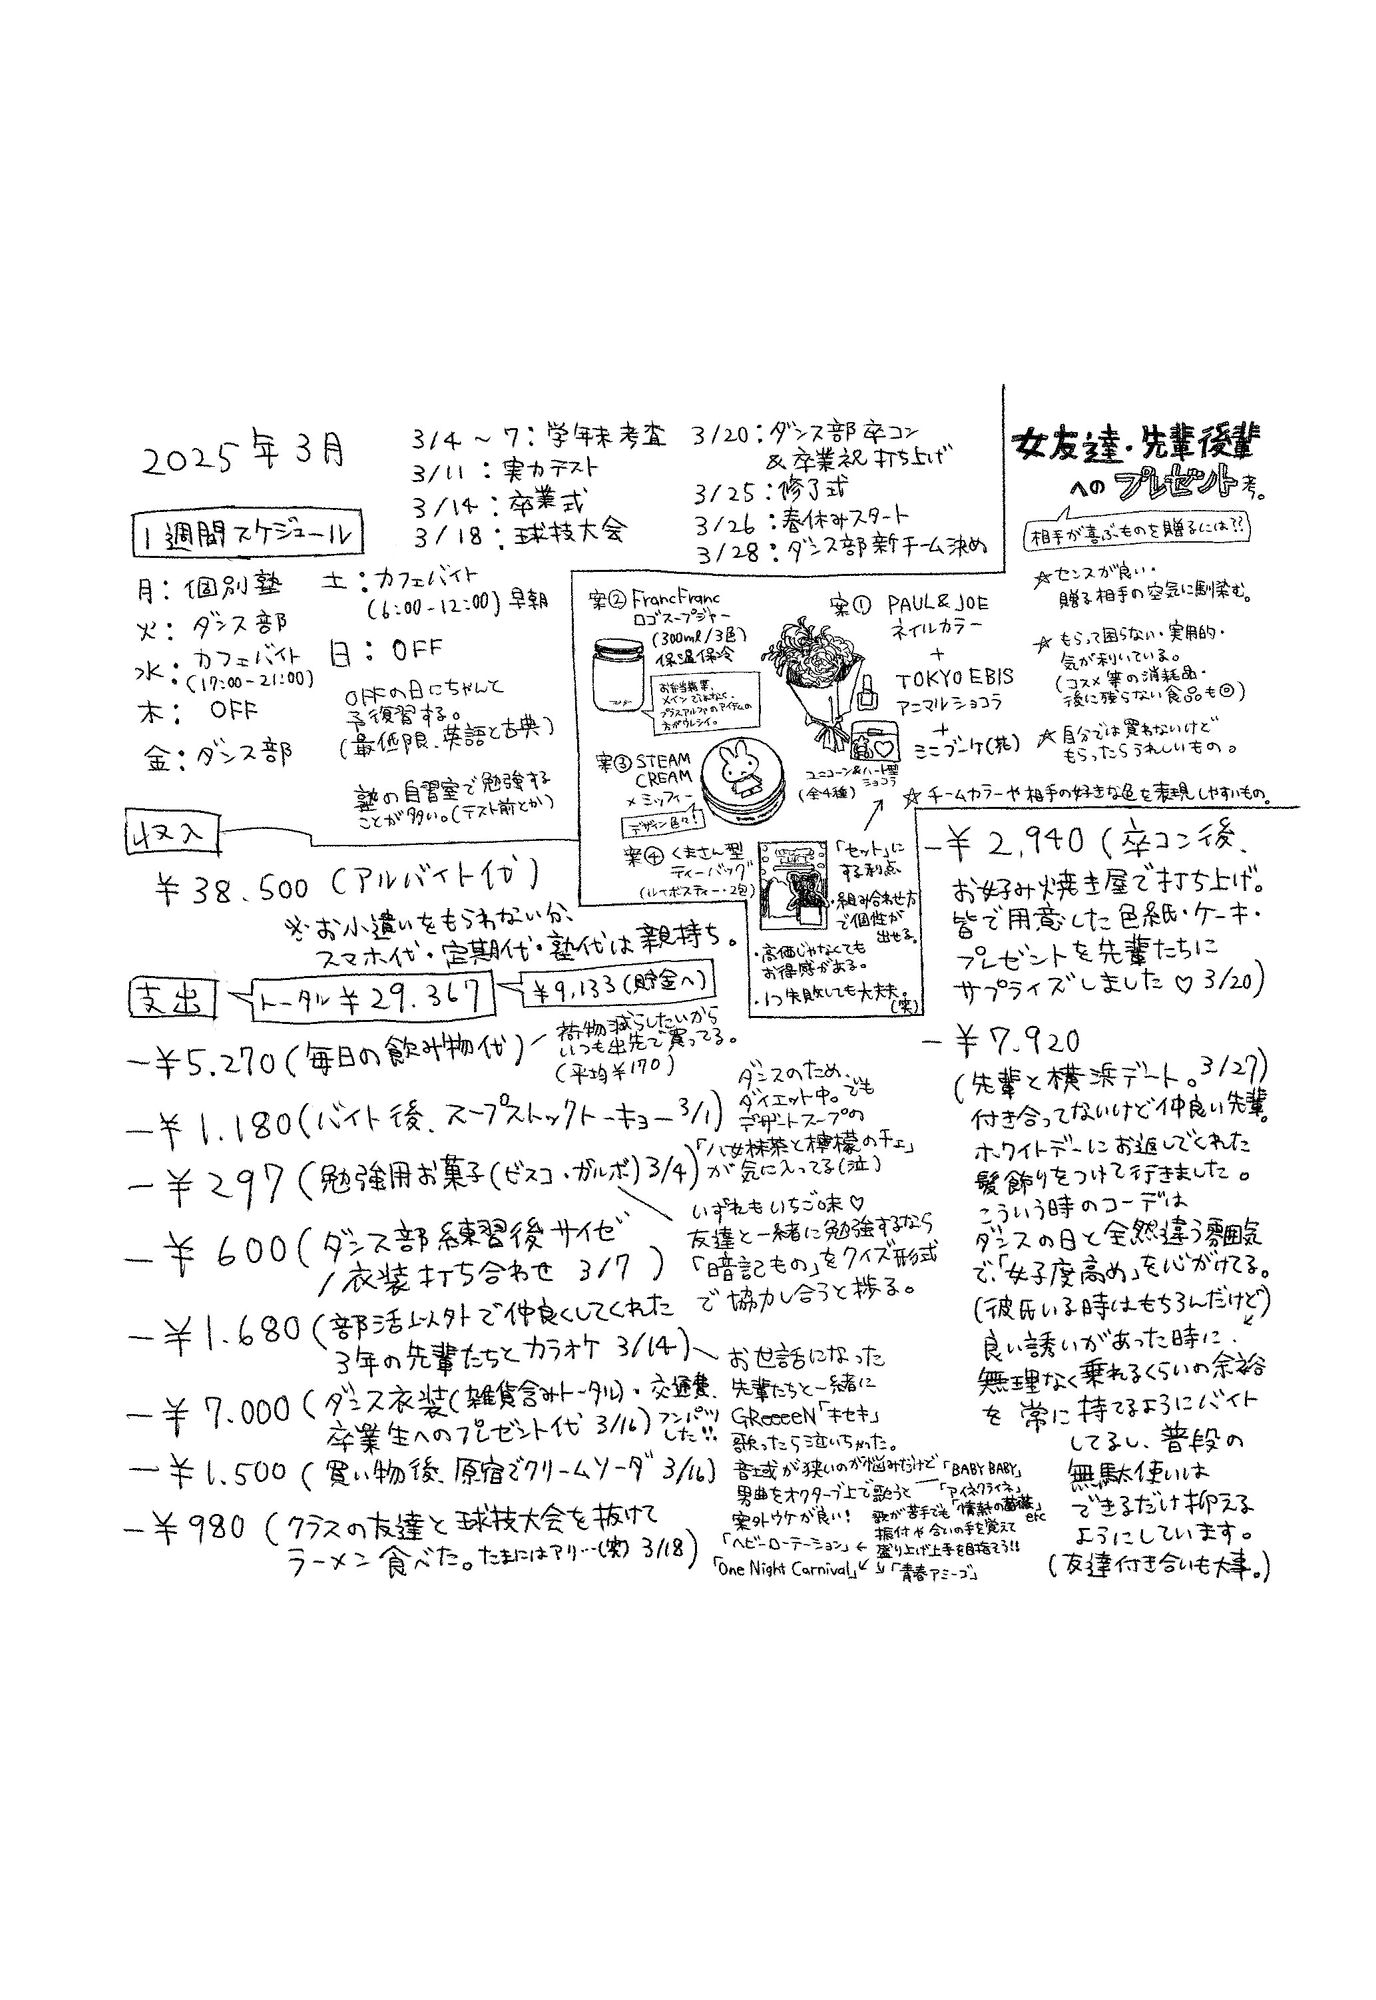 2025年3月
3/4～7：学年末考査
3/11：実力テスト
3/14：卒業式
3/18：球技大会
3/20：ダンス部卒コン
&卒業祝打ち上げ
3/25：修了式
3/26：春休みスタート
3/28：ダンス部新チーム決め
1週間スケジュール
月：個別塾
火：ダンス部
水：カフェバイト
(17:00-21:00)
木：OFF
金：ダンス部
土：カフェバイト
(6:00-12:00)早朝
日：OFF
OFFの日にちゃんと
予復習する。
(最低限、英語と古典)
塾の自習室で勉強する
ことが多い。(テスト前とか)
女友達・先輩後輩
へのプレゼント考。
相手が喜ぶものを贈るには?!
☆センスが良い・
贈る相手の空気に馴染む。
☆もらって困らない・実用的・
気が利いている。
(コスメ等の消耗品・
後に残らない食品も◎)
☆自分では買わないけど
もらったらうれしいもの。
☆チームカラーや相手の好きな色を表現しやすいもの。
案① PAUL&JOE
ネイルカラー
+
TOKYO EBIS
アニマルショコラ
+
ミニブーケ(花)
ユニコーン&ハート型
ショコラ
(全4種)
案② FrancFranc
ロゴスープジャー
(300ml/3色)
保温保冷
お弁当箱等、
メインではなく、
プラスアルファのアイテムの
方がウレシイ。
案③ STEAM
CREAM
×ミッフィー
デザイン色々！
案④ くまさん型
ティーバッグ
(ルイボスティー・2包)
「セット」に
する利点
・組み合わせ方
で個性が
出せる。
・高価じゃなくても
お得感がある。
・1つ失敗しても大丈夫。
(笑)
収入
¥38.500(アルバイト代)
※お小遣いをもらわない分、
スマホ代・定期代・塾代は親持ち。
支出
トータル¥29.367
¥9,133(貯金へ)
－¥5.270(毎日の飲み物代)
荷物減らしたいから
いつも出先で買ってる。
(平均¥170)
－¥1.180(バイト後、スープストックトーキョー3/1)
ダンスのため、
ダイエット中。でも
デザートスープの
「八女抹茶と檸檬のチェ」
が気に入ってる(泣)
－¥297(勉強用お菓子(ビスコ・ガルボ)3/4)
いずれもいちご味♡
友達と一緒に勉強するなら
「暗記もの」をクイズ形式
で協力し合うと捗る。
－¥600(ダンス部練習後サイゼ
/衣装打ち合わせ 3/7)
－¥1.680(部活以外で仲良くしてくれた
3年の先輩たちとカラオケ 3/14)
お世話になった
先輩たちと一緒に
GReeeeN「キセキ」
歌ったら泣いちゃった。
音域が狭いのが悩みだけど
男曲をオクターブ上で歌うと
案外ウケが良い！
「BABY BABY」
「アイネクライネ」
「情熱の薔薇」
etc
歌が苦手でも
振付や合いの手を覚えて
盛り上げ上手を目指そう!!
「ヘビーローテーション」
「One Night Carnival」
「青春アミーゴ」
－¥7.000(ダンス衣装(雑貨含みトータル)・交通費、
卒業生へのプレゼント代 3/16)
フンパツ
した!!
－¥1.500(買い物後、原宿でクリームソーダ 3/16)
－¥980(クラスの友達と球技大会を抜けて
ラーメン食べた。たまにはアリ…(笑) 3/18)
－¥2,940(卒コン後、
お好み焼き屋で打ち上げ。
皆で用意した色紙・ケーキ・
プレゼントを先輩たちに
サプライズしました♡3/20)
－¥7.920
(先輩と横浜デート。3/27)
付き合ってないけど仲良い先輩。
ホワイトデーにお返しでくれた
髪飾りをつけて行きました。
こういう時のコーデは
ダンスの日と全然違う雰囲気
で、「女子度高め」を心がけてる。
(彼氏いる時はもちろんだけど)
良い誘いがあった時に、
無理なく乗れるくらいの余裕
を常に持てるようにバイト
してるし、普段の
無駄使いは
できるだけ抑える
ようにしています。
(友達付き合いも大事。)